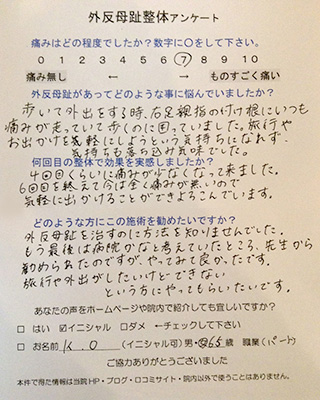 外反母趾整体アンケート
痛みはどの程度でしたか?数字に○をして下さい。
0 1 2 3 4 5 6 7 8 9 10
痛み無し ← → ものすごく痛い
外反母趾があってどのような事に悩んでいましたか?
歩いて外出をする時、右足親指の付け根にいつも
痛みが走っていて歩くのに困っていました。旅行や
お出かけを気軽にしようという気持ちになれず
気持ちも落ち込み気味でした。
何回目の整体で効果を実感しましたか?
4回目くらいに痛みが少なくなって来ました。
6回目を終えて今は全く痛みが無いので
気軽に出かけることができよろこんでいます。
どのような方にこの施術を勧めたいですか?
外反母趾を治すのに方法を知りませんでした。
もう最後は病院かなと考えていたところ、先生から
勧められたのですが、やってみて良かったです。
旅行や外出がしたいけどできない
という方にやってもらいたいです。
あなたの声をホームページや院内で紹介しても宜しいですか?
□はい ☑イニシャル □ダメ ←チェックして下さい
□お名前 K.O (イニシャル可) 男・女 65歳 職業(パート)
ご協力ありがとうございました
本件で得た情報は当院HP・ブログ・口コミサイト・院内以外で使うことはありません。